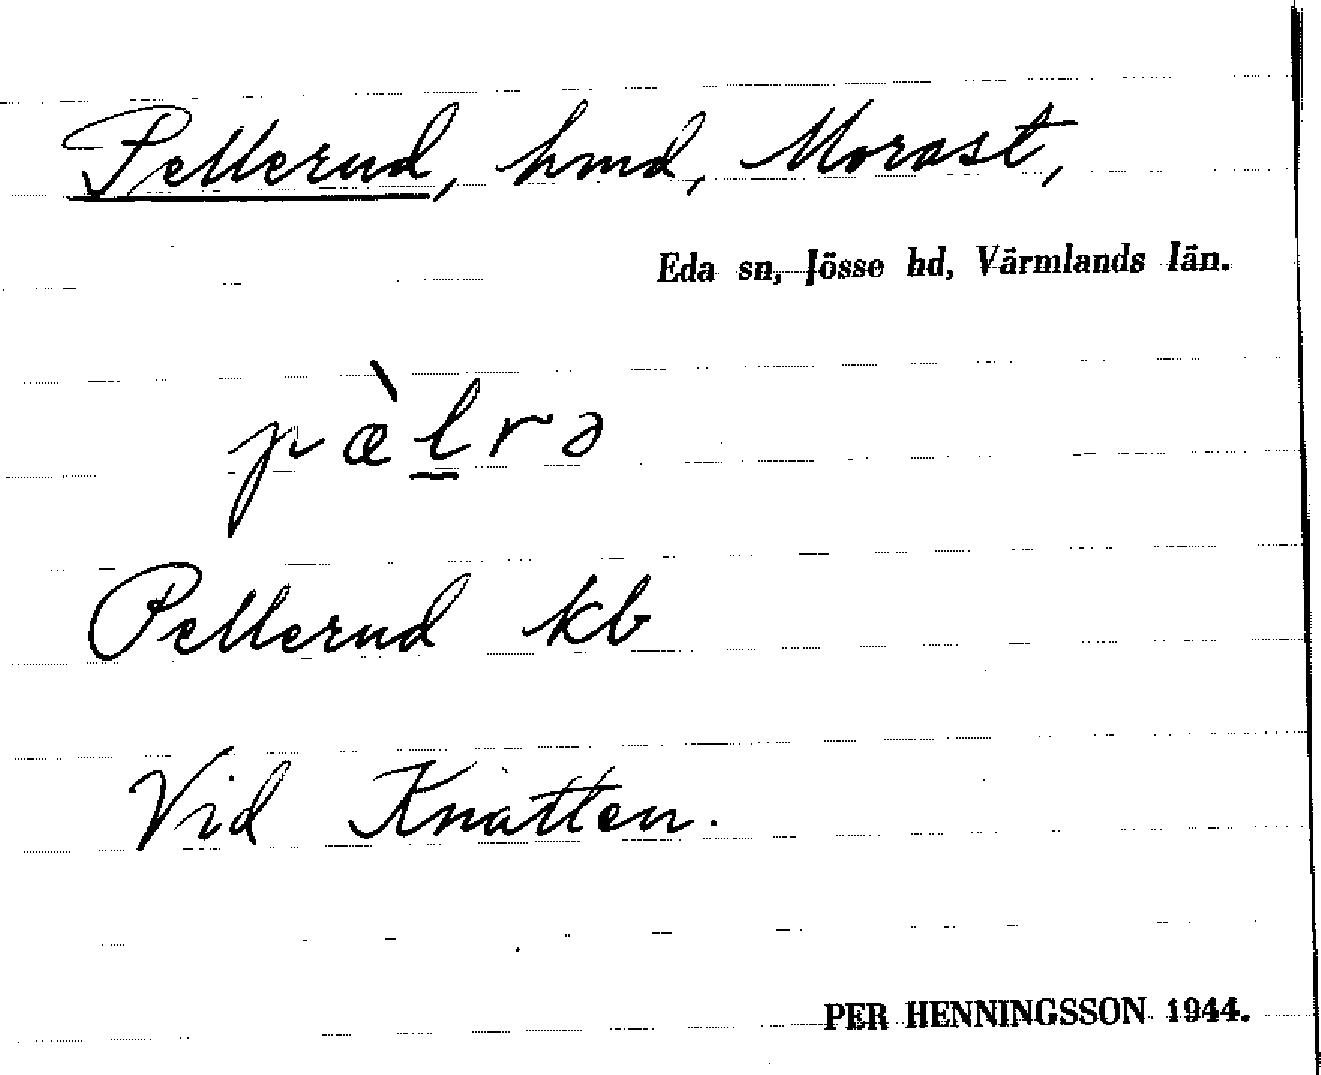 Pellerud, hmd, Morast,
Eda sn, Jösse hd, Värmlands län.
pæ̀l̲rə
Pellerud kb
Vid Knatten.
PER HENNINGSSON 1944.